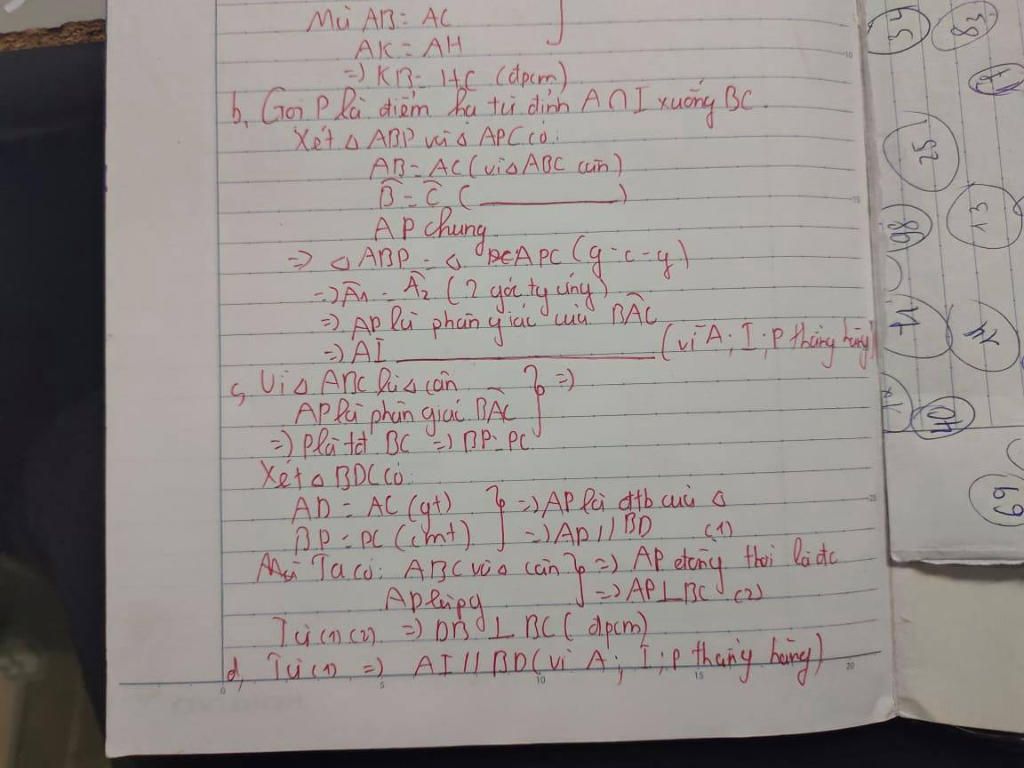 Mà AB = AC
AK = AH
=> KB = HC (đpcm)
b, Gọi P là điểm hạ từ đỉnh A ∩ I xuống BC.
Xét △ ABP và △ APC có:
AB = AC (vì △ ABC cân)
B̂ = Ĉ ( ______ )
AP chung
=> △ ABP = △ APC (g-c-g)
=> Â1 = Â2 (2 góc tý ứng)
=> AP là phân giác của BÂC
=> AI ______ (vì A; I; P thẳng hàng)
c, Vì △ ABC là △ cân } =>
AP là phân giác BÂC
=> P là tđ BC => BP = PC
Xét △ BDC có:
AD = AC (gt) } => AP là đtb của △
BP = PC (cmt) => AP // BD (1)
Ta có: ABC và △ cân } => AP đồng thời là đc
AP là pg => AP ⊥ BC (2)
Từ (1) (2) => DB ⊥ BC (đpcm)
d, Từ (1) => AI // BD (vì A; I; P thẳng hàng)
0 5 10 15 20
10
15
25
34
83
25
13
98
74
40
69